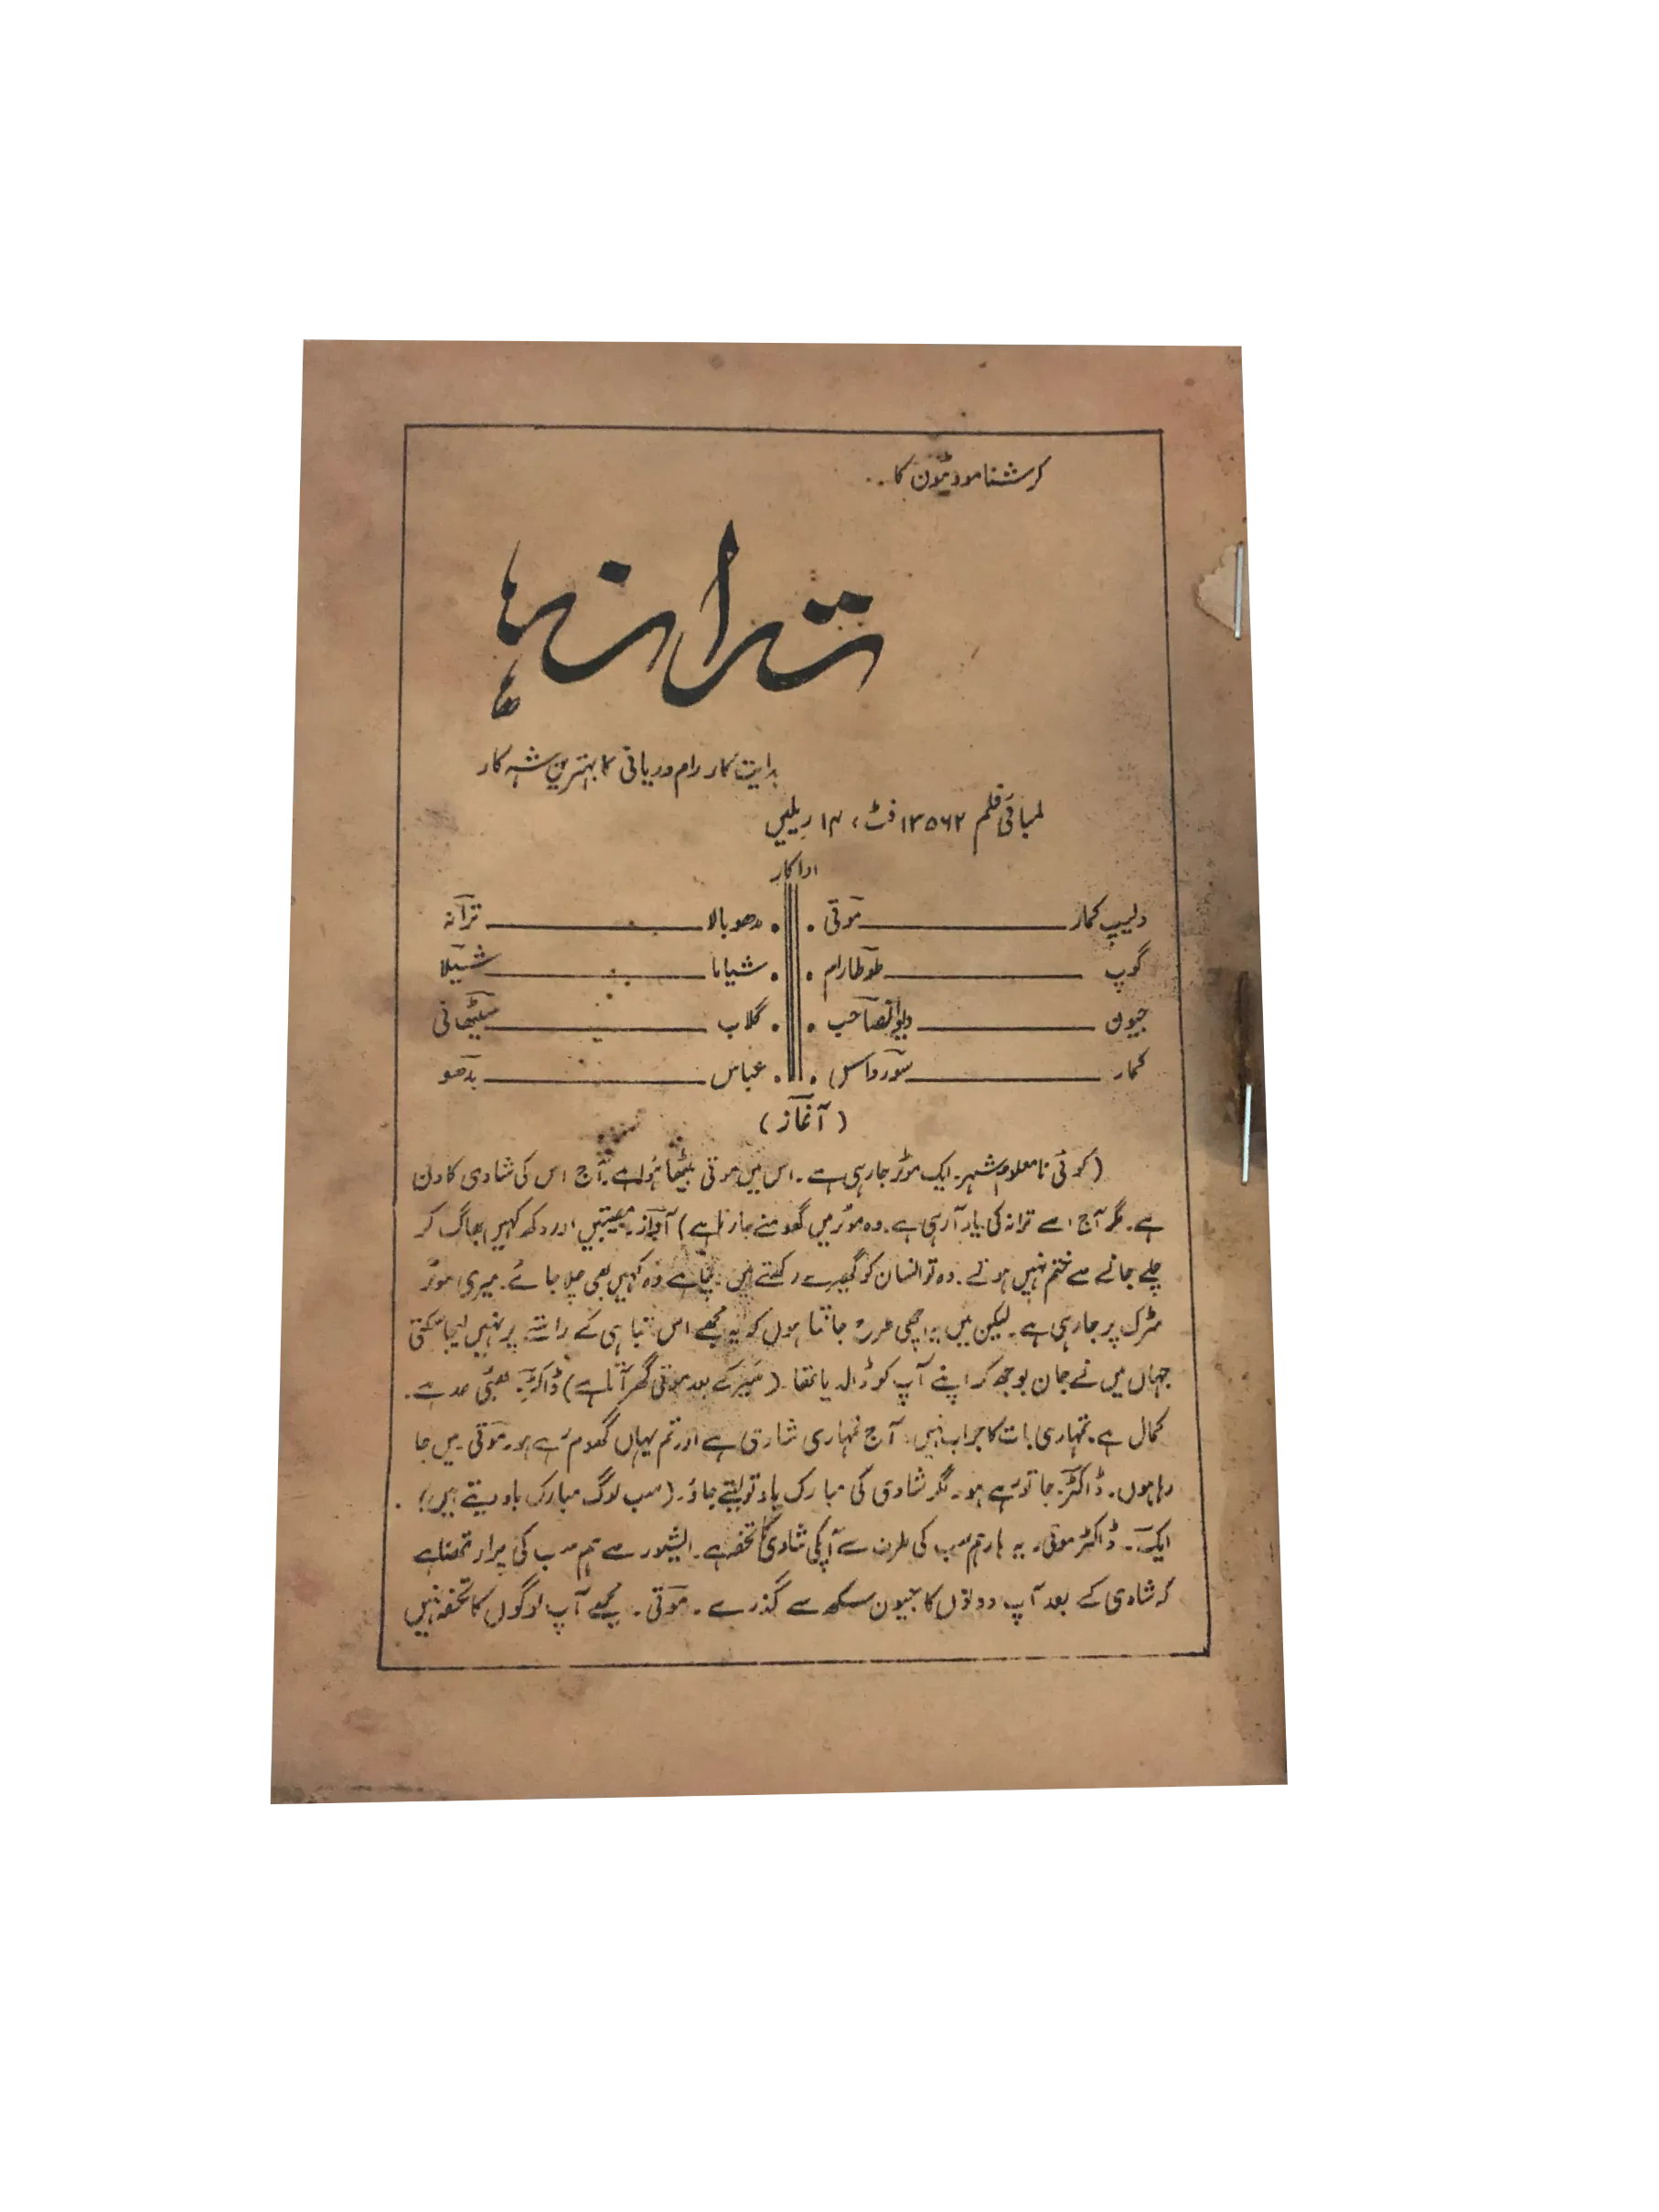 کرشنا موویٹون کا..
ترانہ
ہدایت کار رام دریانی کا بہترین شہ کار
لمبائی فلم ۱۳۵۶۲ فٹ، ۱۴ ریلیں
اداکار
دلیپ کمار — موتی • مدھوبالا — ترانہ
گوپ — طوطا رام • شیاما — شیلا
جیون — دیوانصاحب • گلاب — سیٹھانی
کمار — سورداس • عباس — بدھو
(آغاز)
(کوئی نامعلوم شہر۔ ایک موٹر جا رہی ہے۔ اس میں موتی بیٹھا ہوا ہے۔ آج اس کی شادی کا دن
ہے۔ مگر آج اسے ترانہ کی یاد آ رہی ہے۔ وہ موٹر میں گھومنے جا رہا ہے) آواز۔ مصیبتیں اور دکھ کہیں بھاگ کر
چلے جانے سے ختم نہیں ہوتے۔ وہ تو انسان کو گھیرے رکھتے ہیں۔ چاہے وہ کہیں بھی چلا جائے۔ میری موٹر
سڑک پر جا رہی ہے۔ لیکن میں یہ اچھی طرح جانتا ہوں کہ یہ مجھے اس تباہی کے راستے پر نہیں لیجا سکتی
جہاں میں نے جان بوجھ کر اپنے آپ کو ڈالدیا تھا۔ (سیر کے بعد موتی گھر آتا ہے) ڈاکٹر۔ بھئی حد ہے۔
کمال ہے۔ تمہاری بات کا جواب نہیں۔ آج تمہاری شادی ہے اور تم یہاں گھوم رہے ہو۔ موتی۔ میں جا
رہا ہوں۔ ڈاکٹر۔ جا تو رہے ہو۔ مگر شادی کی مبارک باد تو لیتے جاؤ۔ (سب لوگ مبارک باد دیتے ہیں)۔
ایک۔ ڈاکٹر موتی۔ یہ ہار ہم سب کی طرف سے آپکی شادی کا تحفہ ہے۔ ایشور سے ہم سب کی پرارتھنا ہے
کہ شادی کے بعد آپ دونوں کا جیون سکھ سے گذرے۔ موتی۔ مجھے آپ لوگوں کا تحفہ نہیں